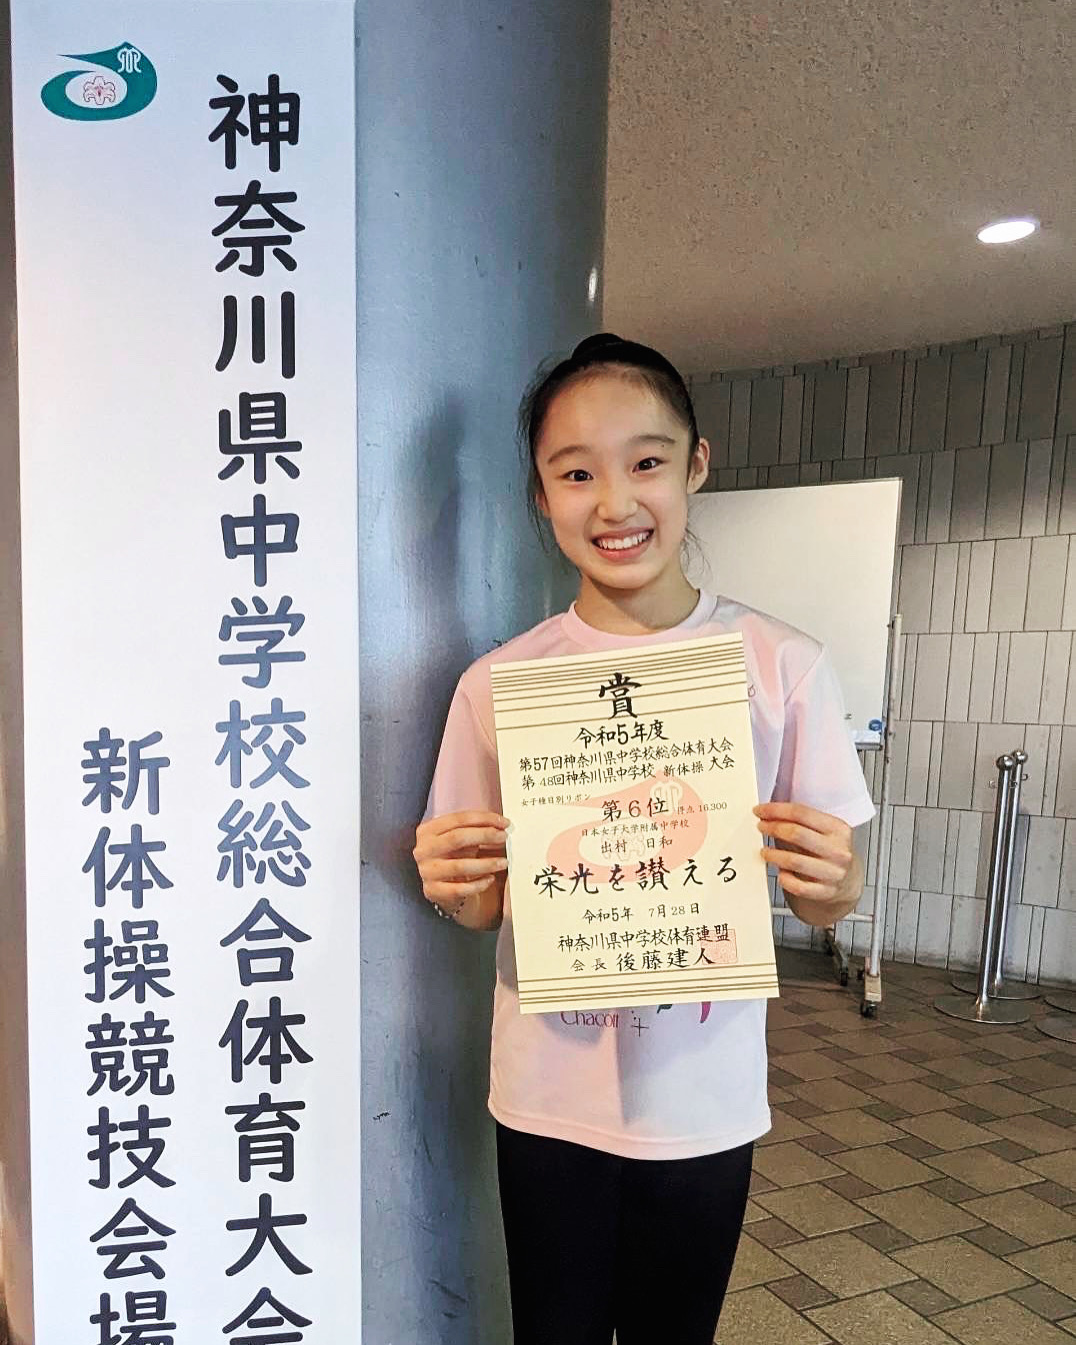 神奈川県中学校総合体育大会
新体操競技会場
賞
令和5年度
第57回神奈川県中学校総合体育大会
第48回神奈川県中学校 新体操 大会
女子種目別リボン
第6位 得点 16.300
日本女子大学附属中学校
出村 日和
栄光を讃える
令和5年 7月28日
神奈川県中学校体育連盟
会長 後藤建人
Chacott